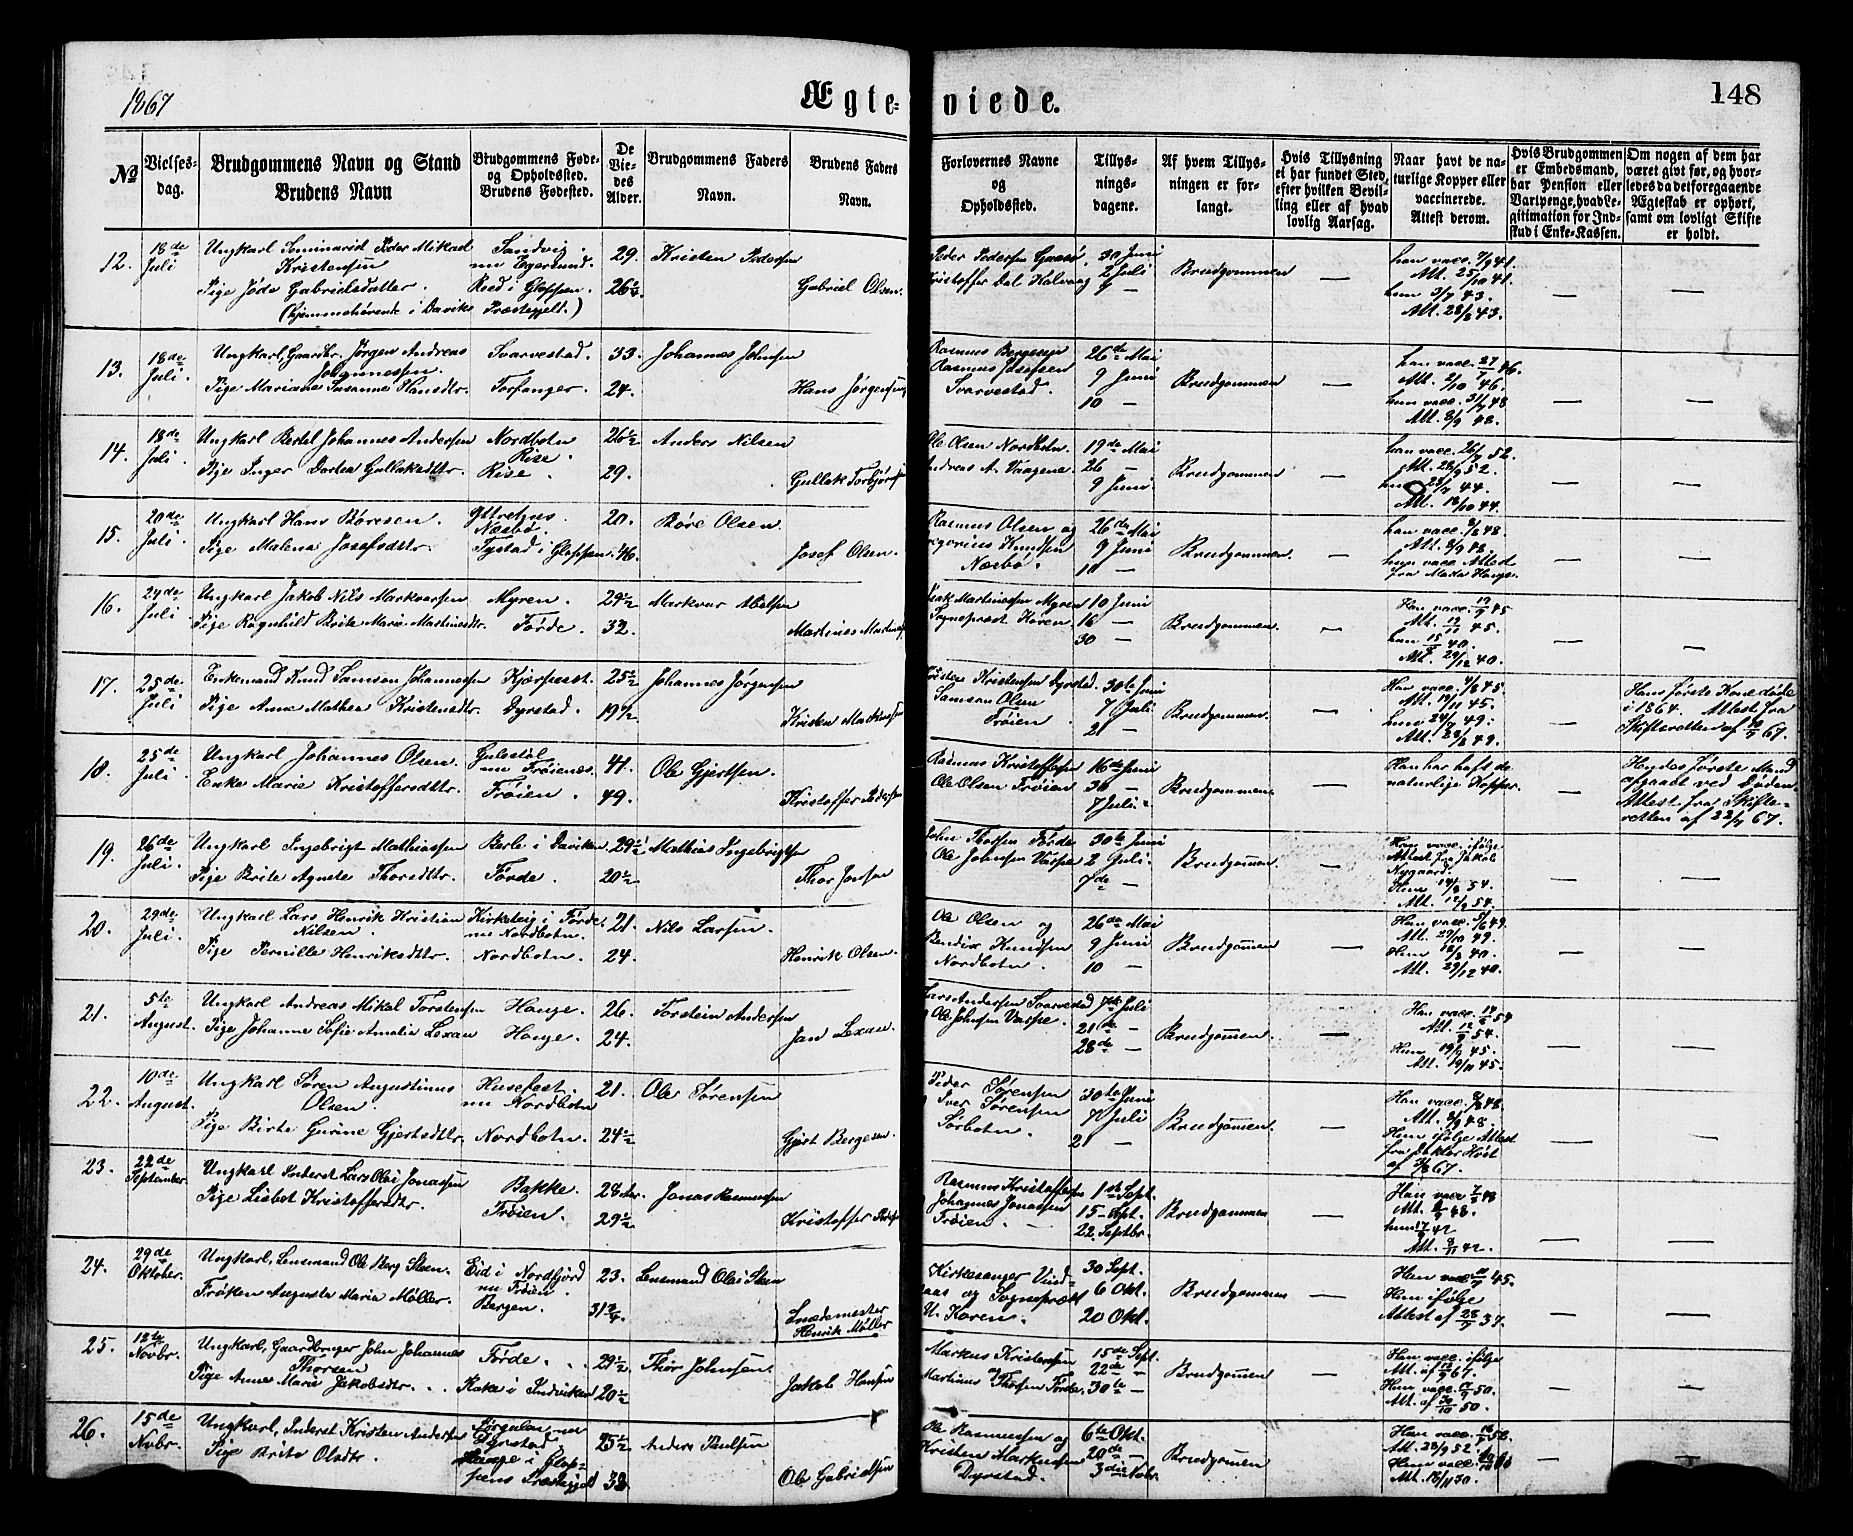 1867
Ægte-viede.
148
№
Vielses-dag.
Brudgommens Navn og Stand
Brudens Navn
Brudgommens Føde- og Opholdssted.
Brudens Fødested.
De Vie-des Alder.
Brudgommens Faders Navn.
Brudens Faders Navn.
Forlovernes Navne og Opholdssted.
Tillys-nings-dagene.
Af hvem Tillys-ningen er for-langt.
Hvis Tillysning ei har fundet Sted, efter hvilken Bevil-ling eller af hvad lovlig Aarsag.
Naar havt de na-turlige Kopper eller vaccinerede. Attest derom.
Hvis Brudgommen er Embedsmand, har Pension eller Vartpenge, hvad Le-gitimation for Ind-skud i Enke-Kassen.
Om nogen af dem har været givt før, og hvor-ledes da det foregaaende Ægteskab er ophørt, samt om lovligt Skifte er holdt.
12. 18de Juli Ungkarl Seminarist Peder Mikael Kristensen Sandvig nu Egersund. 29. Kristen Pedersen
Pige Jøde Gabrielsdatter. Reed i Gloppen. 26½ Gabriel Olsen.
(hjemmehørende i Daviks Præstegjeld.)
Peder Pedersen 30 Juni 2 Juli 7 — Brudgommen — han vacc. 7/9 41. Att. 25/10 41. hun 3/7 43. Att. 28/8 43. — —
13. 18de Juli. Ungkarl, Gaardbr. Jørgen Andreas Johannessen. Svarvestad. 33. Johannes Johnsen
Pige Mariane Susanne Hansdtr. Torfanger. 24. Hans Jørgensen
Rasmus Børgesen Rasmus Josefsen Svarvestad. 26de Mai 9 Juni 10 — Brudgommen — han vacc. 27/7 46. Att. 2/10 46. hun vacc. 31/7 48 Att. 8/9 48. — —
14. 18de Juli Ungkarl Bertel Johannes Andersen Nordbotn Rise. 26½ Anders Nilsen
Pige Inger Dorthea Gullaksdtr. Rise. 29. Gullak Torbjørns
Ole Olsen Nordbotn Andreas A. Vaagene. 19de Mai 26 — 9 Juni. Brudgommen — han vacc. 26/7 52. Att. 28/9 52. hun 23/7 44. Att. 18/10 44. — —
15. 20de Juli. Ungkarl Hans Børesen. Yttrehus Næsbø. 20. Børe Olsen
Pige Malena Josefsdtr. Tystad i Gloppen. 46. Josef Olsen.
Rasmus Olsen og Gregorius Knudsen Næsbø. 26de Mai 9 Juni 10 — Brudgommen. — han vacc. 8/8 48. Att. 8/9 48. hun vacc. Attest fra Mads Hauge. — —
16. 24de Juli Ungkarl Jakob Nils Markussen Myren. 29½ Markus Abelsen
Pige Ragnhild Brite Marie Martinesdtr. Førde. 32. Martines Martines
Isak Martinussen Myren Sogneprest Koren. 10 Juni 16 — 30 — Brudgommen. — Han vacc. 17/9 45 Att. 12/11 45. hun 15/8 40. Att. 29/12 40. — —
17. 25de Juli Enkemand Knud Samson Johannessen Kjærpeset. 25½ Johannes Jørgensen
Pige Anne Mathea Kristensdtr. Dyrstad. 19½ Kristen Markussen
Kristen Kristensen Dyrstad. Samson Olsen Frøien 30te Juni 7 Juli. 21 — Brudgommen. — Han vacc. 4/8 45. Att. 14/11 45. hun 24/7 49. Att. 28/8 49. — Hans første Kone døde i 1864. Attest fra Skifteretten af 19/7 67.
18. 25de Juli. Ungkarl Johannes Olsen. Gulestøl nu Frøienæs. 41. Ole Gjertsen.
Enke Marie Kristoffersdtr. Frøien. 49. Kristoffer Peders
Rasmus Kristoffersen Ole Olsen Frøien 16de Juni 30 — 7 Juli. Brudgommen — Han har haft de naturlige Kopper. — Hendes første Mand afgaaet ved Døden. Attest fra Skifte-retten af 22/7 67.
19. 26de Juli. Ungkarl Ingebrigt Mathiassen Berle i Daviken 29½ Mathias Ingebrigtsen
Pige Brite Agnete Thorsdtr. Førde. 20½ Thor Jonsen
John Thorsen Førde Ole Johnsen Varpe. 30te Juni 2 Juli. 7de — Brudgommen — Han vacc. ifølge Attest fra Jakob Nygaard. Hun 14/8 54. Att. 12/9 54. — —
20. 29de Juli. Ungkarl Lars Henrik Kristian Nilsen. Kirketeig i Førde nu Nordbotn. 21. Nils Larsen.
Pige Pernille Henriksdtr. Nordbotn. 24. Henrik Olsen.
Ole Olsen og Bendix Knudsen Nordbotn. 26de Mai 9 Juni 10 — Brudgommen — Han vacc. 5/6 49. Att. 29/10 49. Hun 18/8 40. Att. 29/12 40. — —
21. 5te August. Ungkarl Andreas Mikal Torstensen Hauge. 26. Torstein Andersen
Pige Johanne Sofie Amalia Lexau Hauge. 24. Jan Lexau.
Lars Andersen Svarvestad Ole Johnsen Varpe. 7de Juli 21de — 28de — Brudgommen. — Han vacc. 14/8 54 Att. 12/9 54. Hun 19/9 45. Att. 19/11 45. — —
22. 10de August. Ungkarl Søren Augustinus Olsen. Husefest. nu Nordbotn 21. Ole Sørensen
Pige Birte Gurine Gjertsdtr. Nordbotn. 24½ Gjert Bergesen.
Peder Sørensen Iver Sørensen Sørbotn. 30te Juni 7 Juli 21 — Brudgommen. — Han vacc. 8/8 48. Att. 8/9 48. Hun ifølge Attest fra Doktor Høst af 7/8 67. — —
23. 22de September. Ungkarl Inderst Lars Olai Jonassen Bakke. 28 Aar. Jonas Rasmussen
Pige Lisbet Kristoffersdtr. Frøien. 29½ Kristoffer Peders
Rasmus Kristoffersen Johannes Jonassen Frøien. 1ste Sept. 15 — Sept. 22. Septbr. Brudgommen — Han vacc. 7/8 48 Att. 8/9 48. hun 17/9 42 Att. 8/11 42. — —
24. 29de Oktober. Ungkarl, Lensmand Ole Berg Steen. Eid i Nordfjord nu Frøien. 23. Lensmand Olai Steen
Frøken Augusta Maria Møller. Bergen. 31¾ Snedemester Henrik Møller
Kirkesanger Vind-aas og Sogneprest H. Koren. 30 Sept. 6 Okt. 20 Okt. Brudgommen — Han vacc. 11/7 45. Hun ifølge Attest af 28/7 37. — —
25. 12te Novbr. Ungkarl, Gaardbruger John Johannes Thorsen Førde. 29½ Thor Johnsen.
Pige Anne Marie Jakobsdtr. Rake i Indviken 20½ Jakob Hansen
Markus Kristensen og Martinus Thorsen Førde. 15de Sept. 22de — 30te — Brudgommen — Han vacc. ifølge Att. af 12/9 67. Hun vacc. 17/9 50. Att. af 30/10 50. — —
26. 15de Novbr. Ungkarl, Inderst Kristen Andersen nu Dyrstad. 25½ Anders Paulsen
Pige Brite Olsdtr. Hauge i Glop-pens Præstegjeld 32 Ole Gabrielsen
Ole Rasmussen og Kristen Markussen Dyrstad. 6te Okt. 20de — 3die Nvbr. Brudgommen — Han vacc. 18/8 52. Att. 28/9 52. Hun vacc. Att. 18/11 50. — —